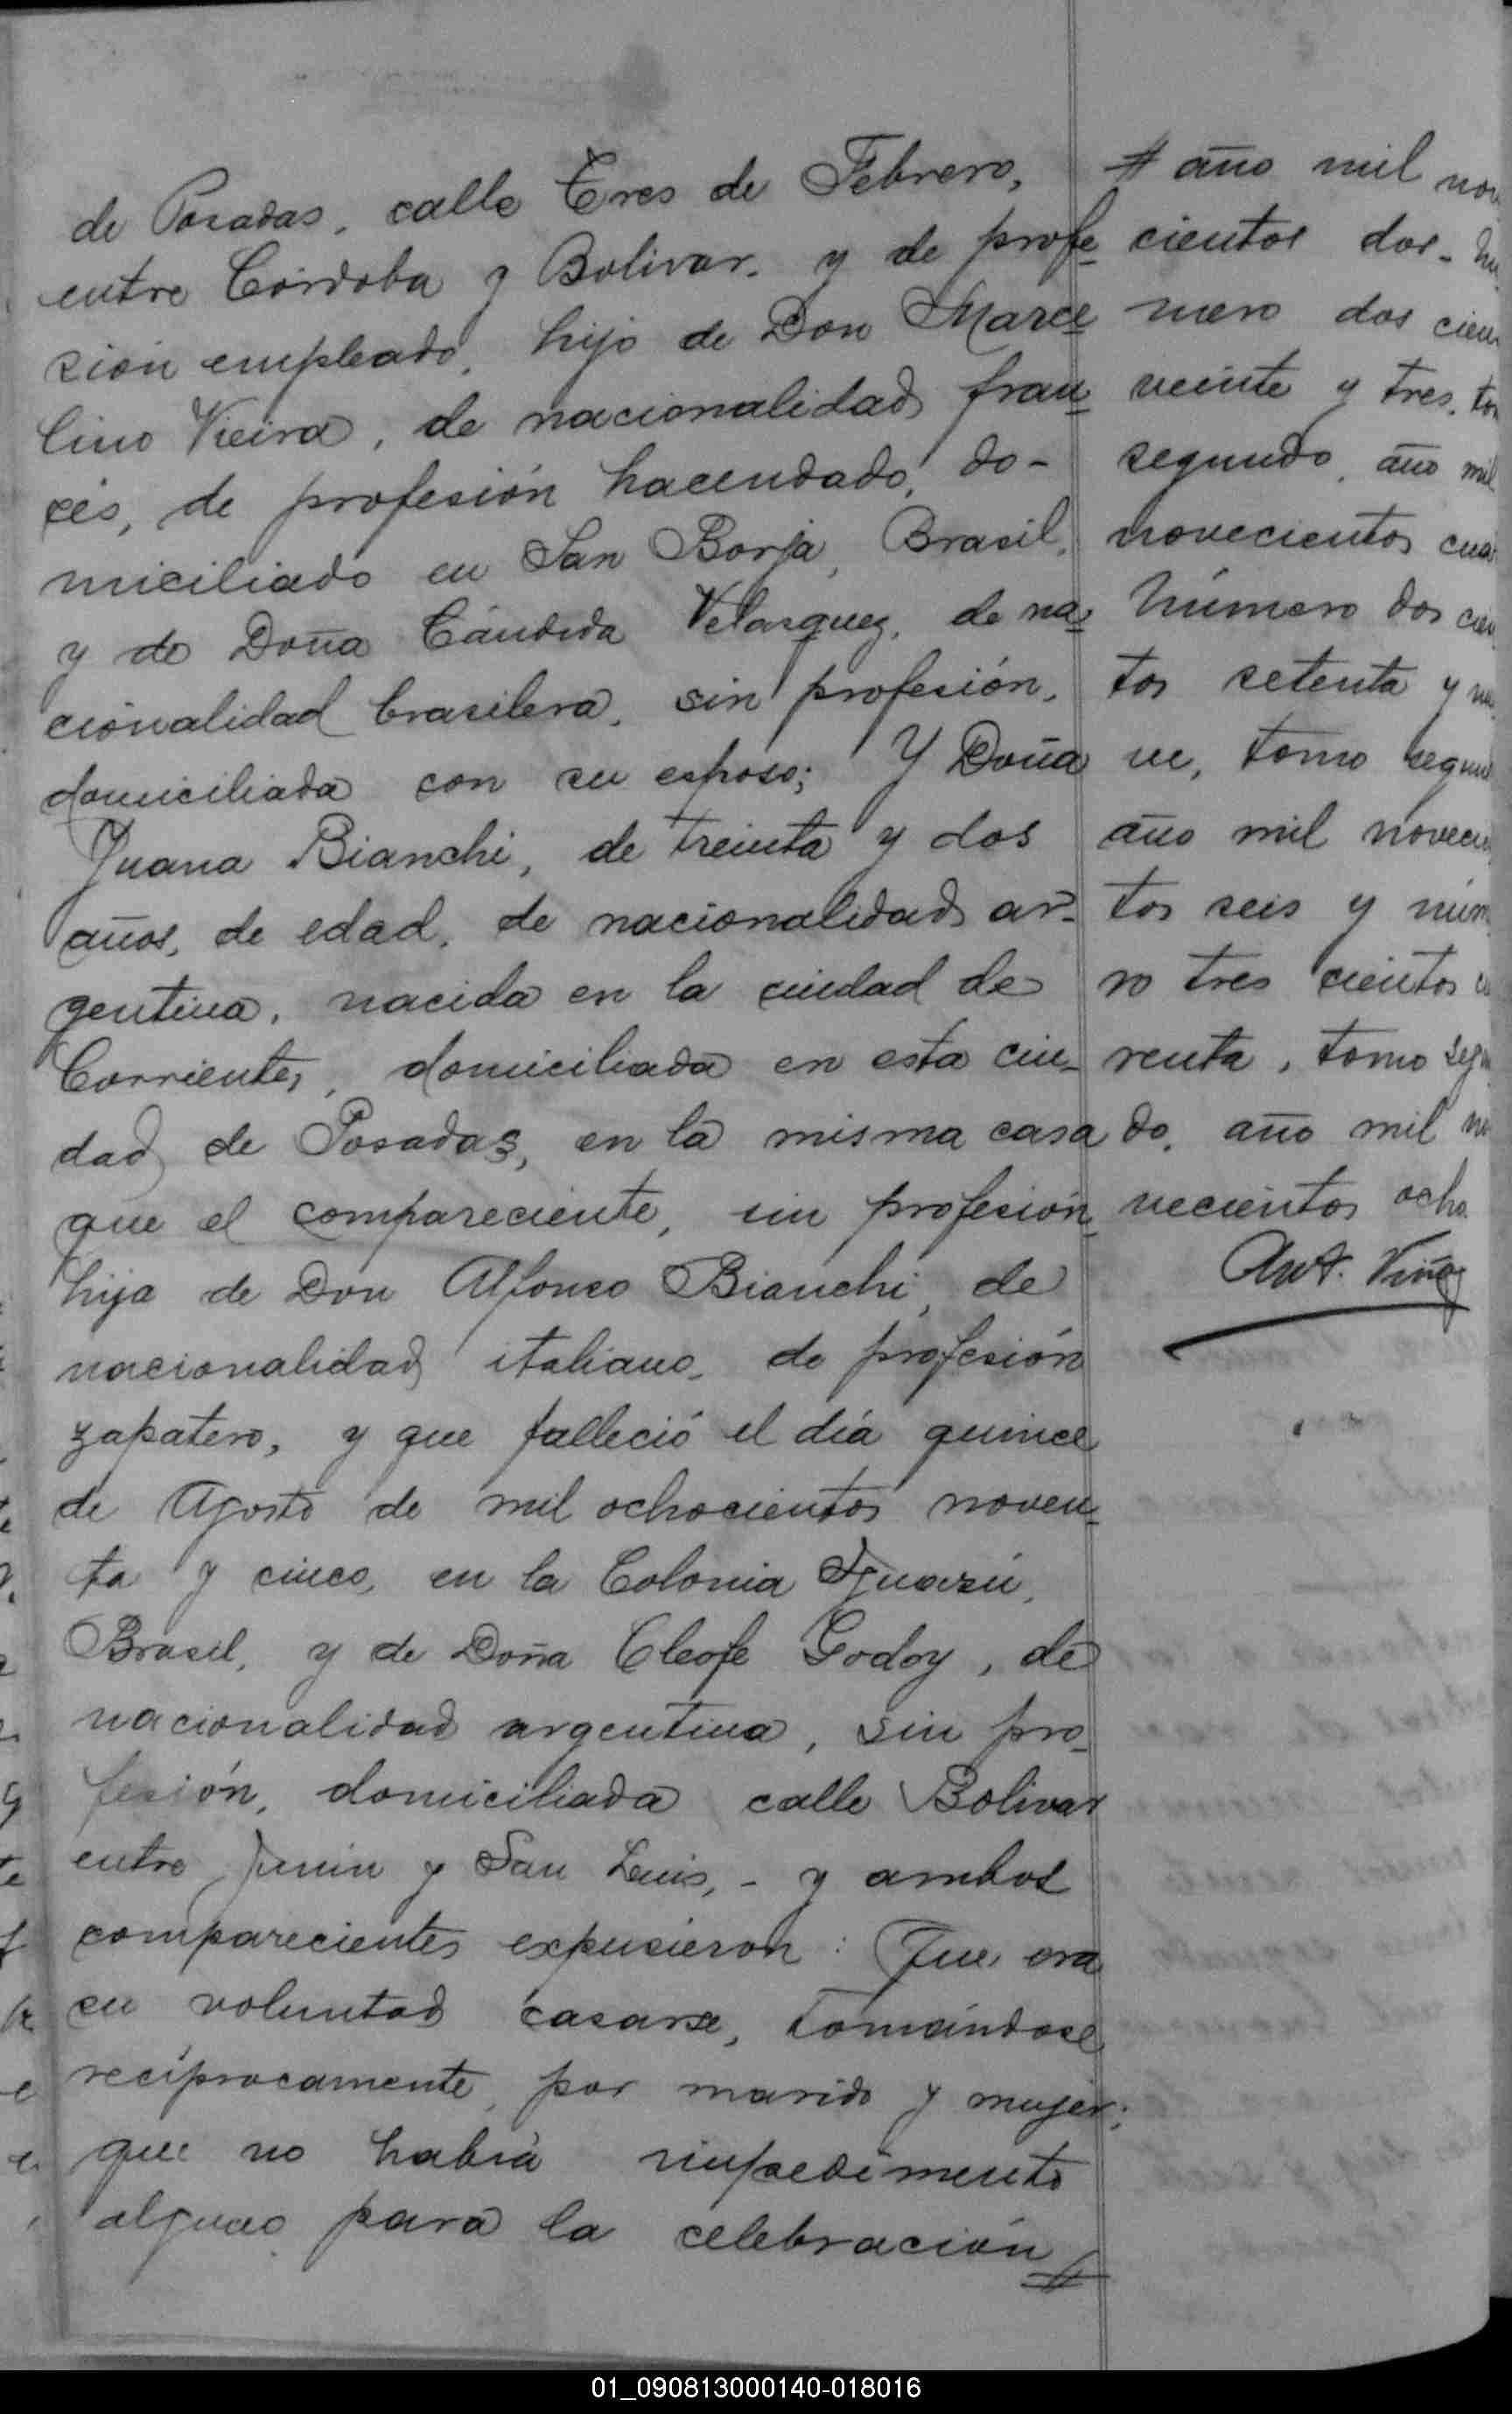 de Posadas, calle Tres de Febrero,
entre Córdoba y Bolivar, y de profe
sión empleado, hijo de Don Marce
lino Vieira, de nacionalidad fran
cés, de profesión hacendado, do-
miciliado en San Borja, Brasil,
y de Doña Cándida Velasquez, de na
cionalidad brasilera, sin profesión,
domiciliada con su esposo; Y Doña
Juana Bianchi, de treinta y dos
años, de edad, de nacionalidad ar-
gentina, nacida en la ciudad de
Corrientes, domiciliada en esta ciu-
dad de Posadas, en la misma casa
que el compareciente, sin profesión,
hija de Don Alfonso Bianchi, de
nacionalidad italiano, de profesión
zapatero, y que falleció el día quince
de Agosto de mil ochocientos noven-
ta y cinco, en la Colonia Iguazú,
Brasil, y de Doña Cleofe Godoy, de
nacionalidad argentina, sin pro-
fesión, domiciliada calle Bolivar
entre Junin y San Luis, - y ambos
comparecientes expusieron: Que era
su voluntad casarse, tomándose
recíprocamente, por marido y mujer;
que no había impedimento
alguno para la celebración
# año mil nov
cientos dos - nú
mero dos cien
veinte y tres, to
segundo, año mil
novecientos cua
Número dos cien
tos setenta y nu
ve, tomo segun
año mil novecie
tos seis y núm
ro tres cientos c
renta, tomo segu
do, año mil no
vecientos ocho.
Ant. Viña
01_090813000140-018016